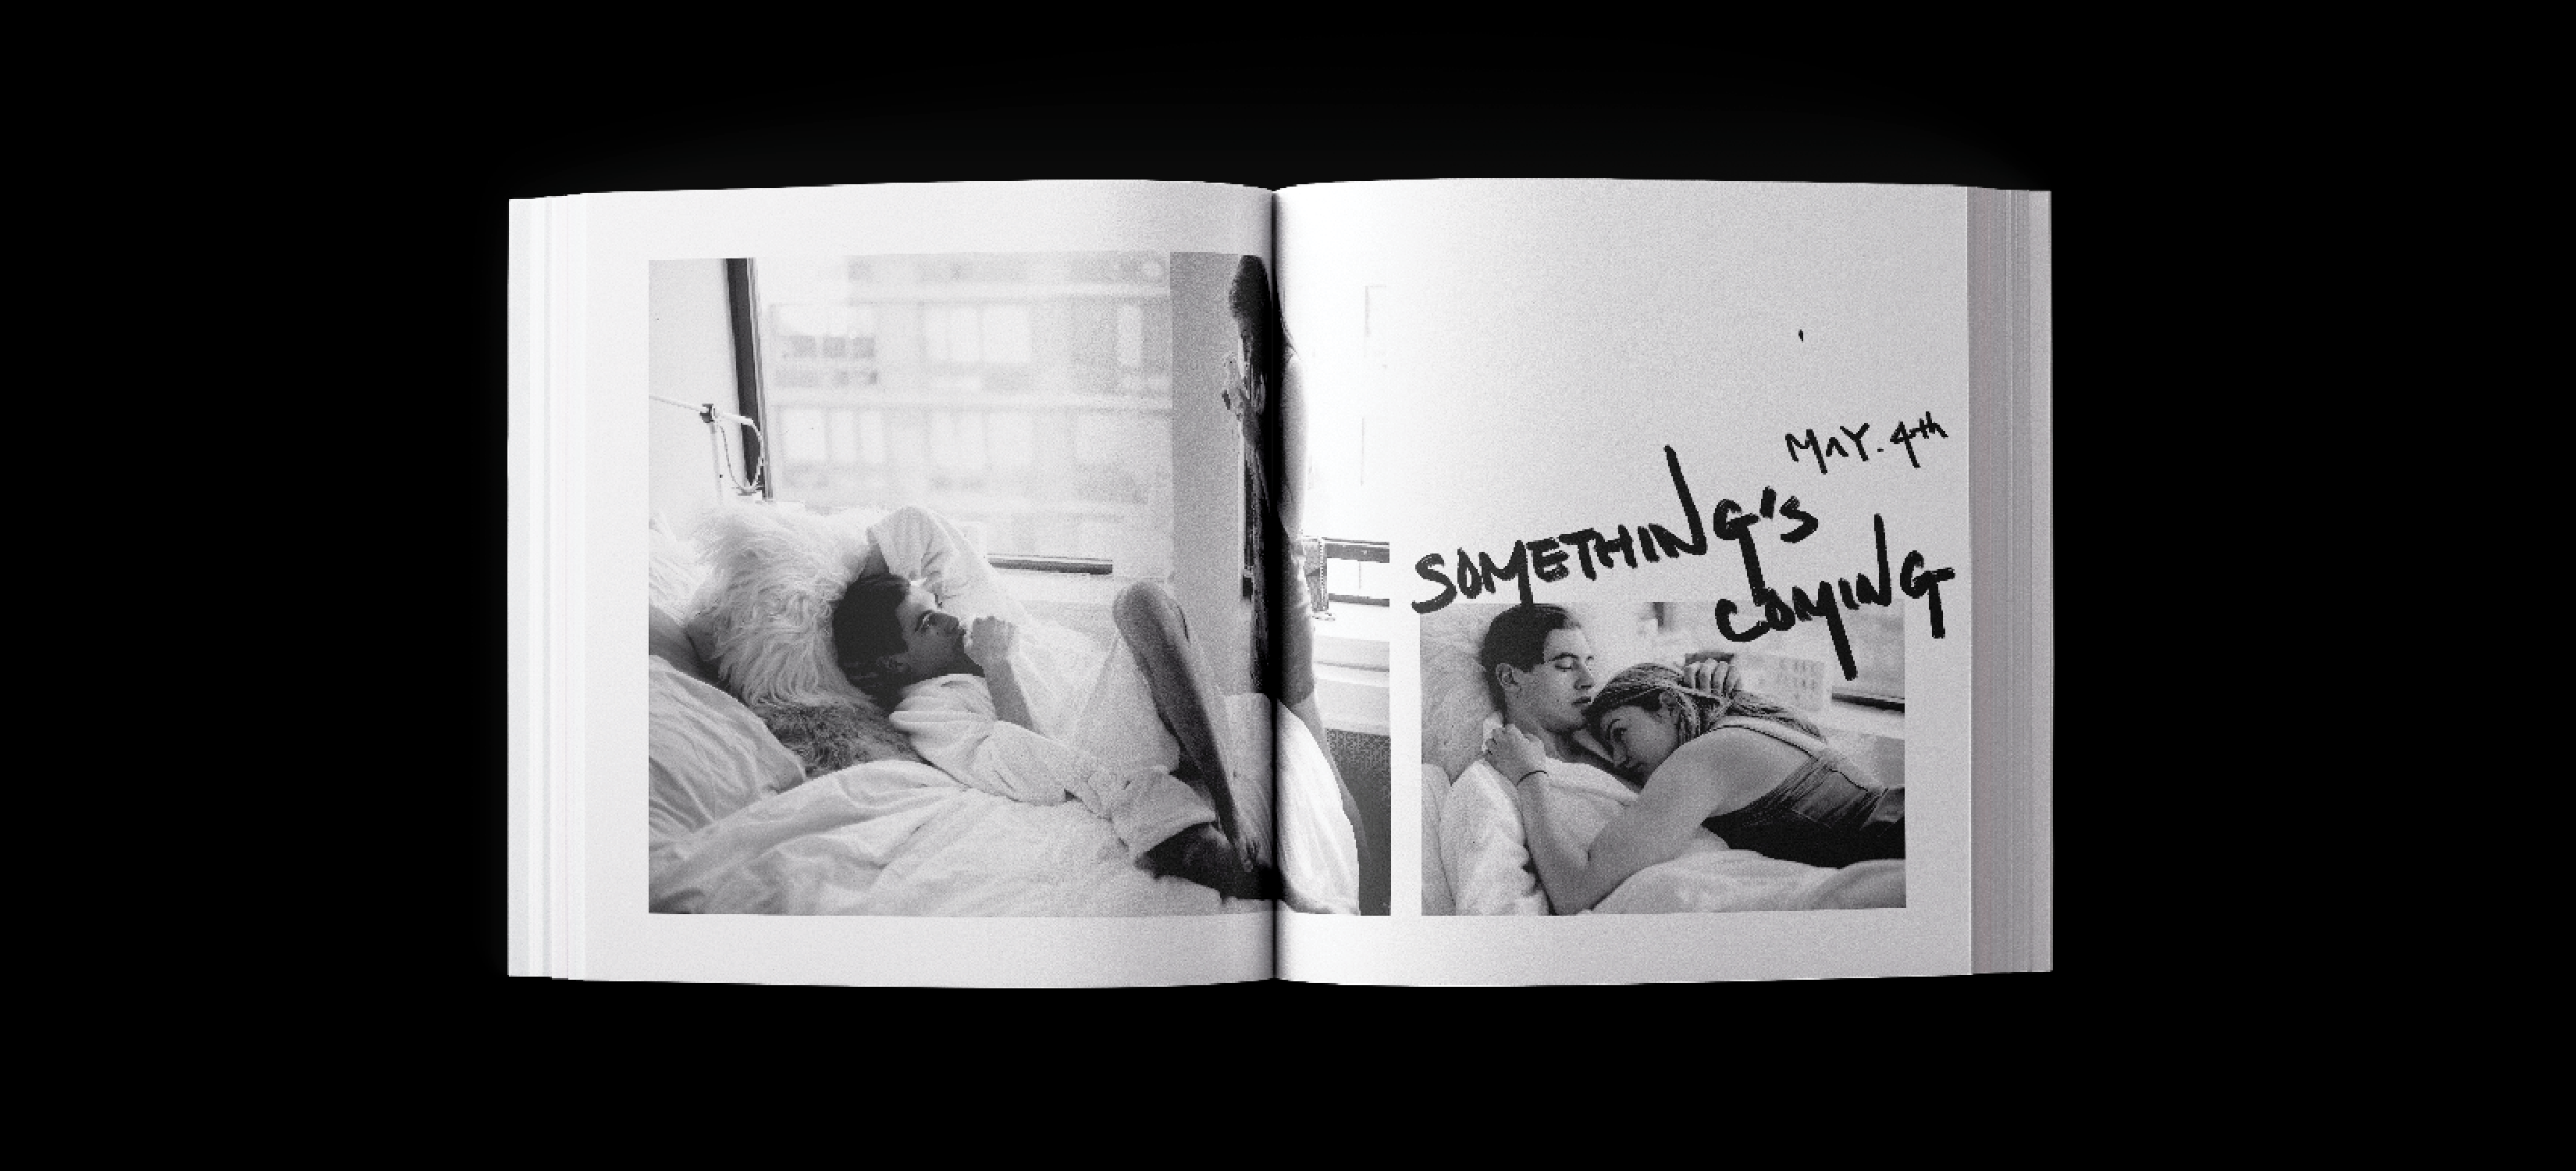 MAY. 4th
SOMETHING'S
COMING